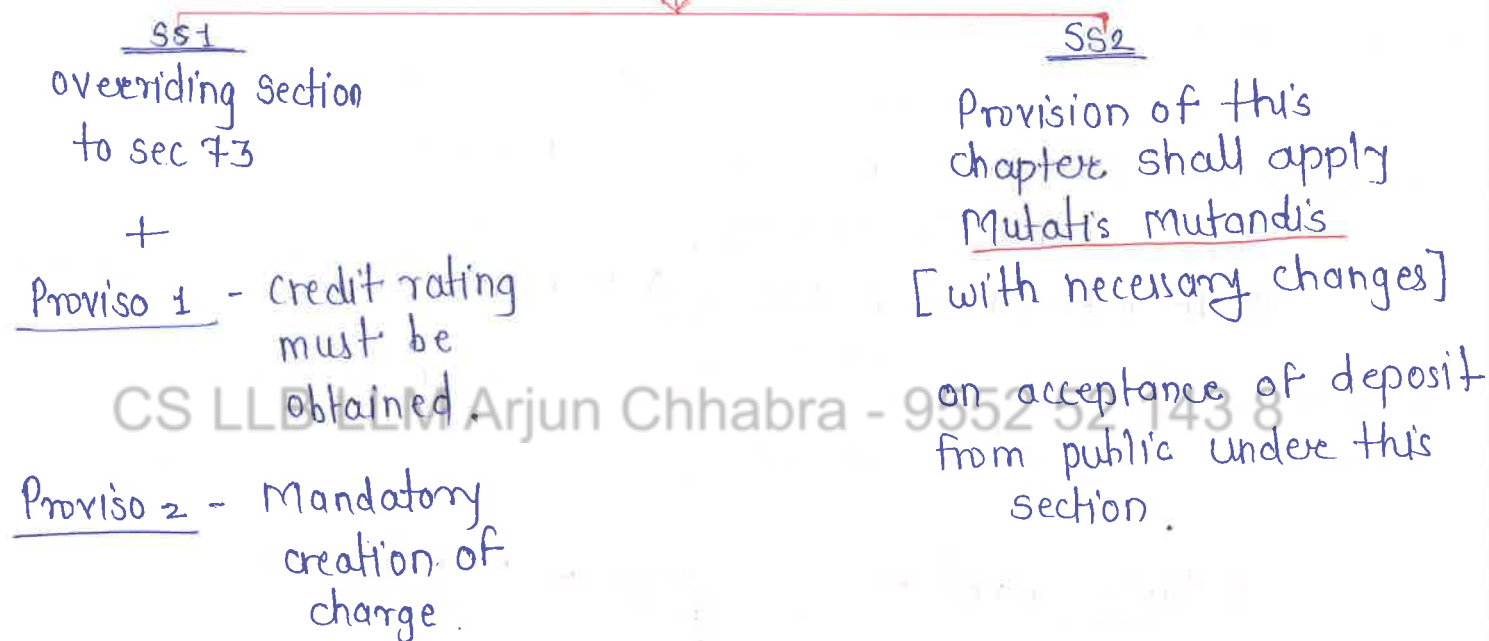 SS1
overriding section
to sec 73
+
Proviso 1 - credit rating
must be
obtained.
Proviso 2 - Mandatory
creation of
charge.
SS2
Provision of this
chapter shall apply
Mutatis mutandis
[with necessary changes]
on acceptance of deposit
from public under this
section.
CS LLB LLM Arjun Chhabra - 9552 52 143 8